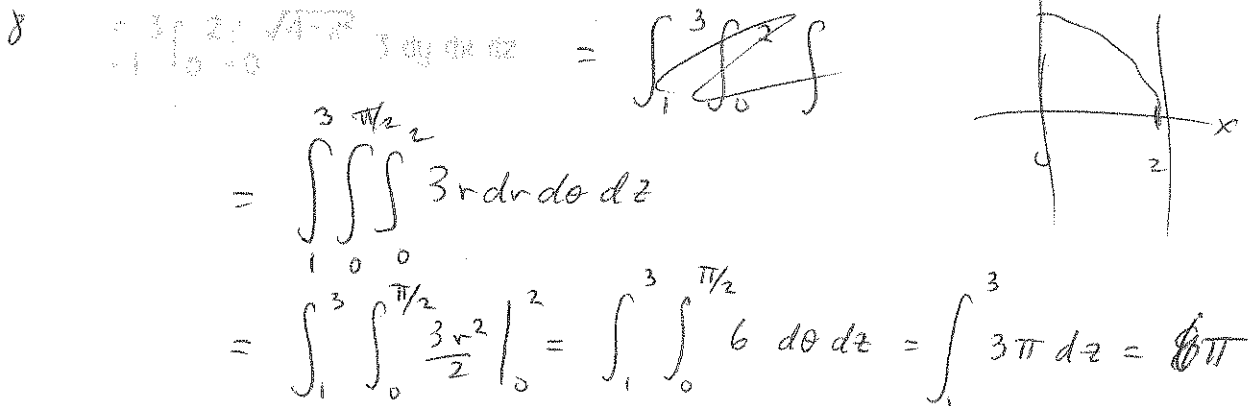 8 ∫₁³ ∫₀² ∫₀^√(4-x²) 3 dy dx dz = ∫₁³ ∫₀² ∫
= ∫₁³ ∫₀^π/2 ∫₀² 3r dr dθ dz
= ∫₁³ ∫₀^π/2 3r²/2 |₀² = ∫₁³ ∫₀^π/2 6 dθ dz = ∫₁³ 3π dz = 6π
x
0 2